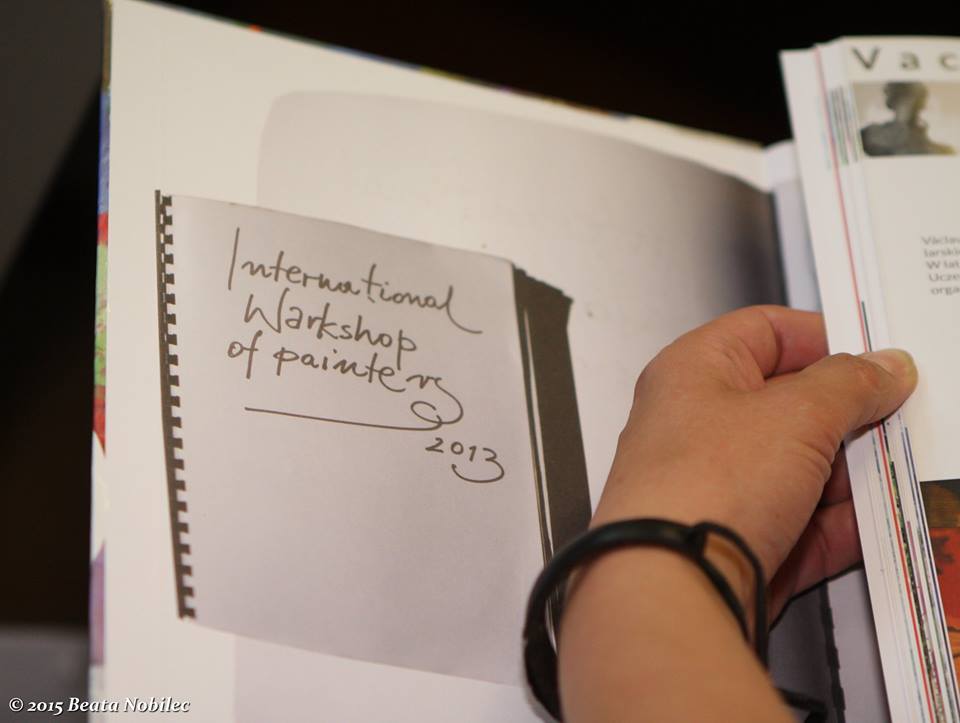 International
Warkshop
of painters
2013
Vac
Václa
larski
W lat
Ucze
orga
© 2015 Beata Nobilec